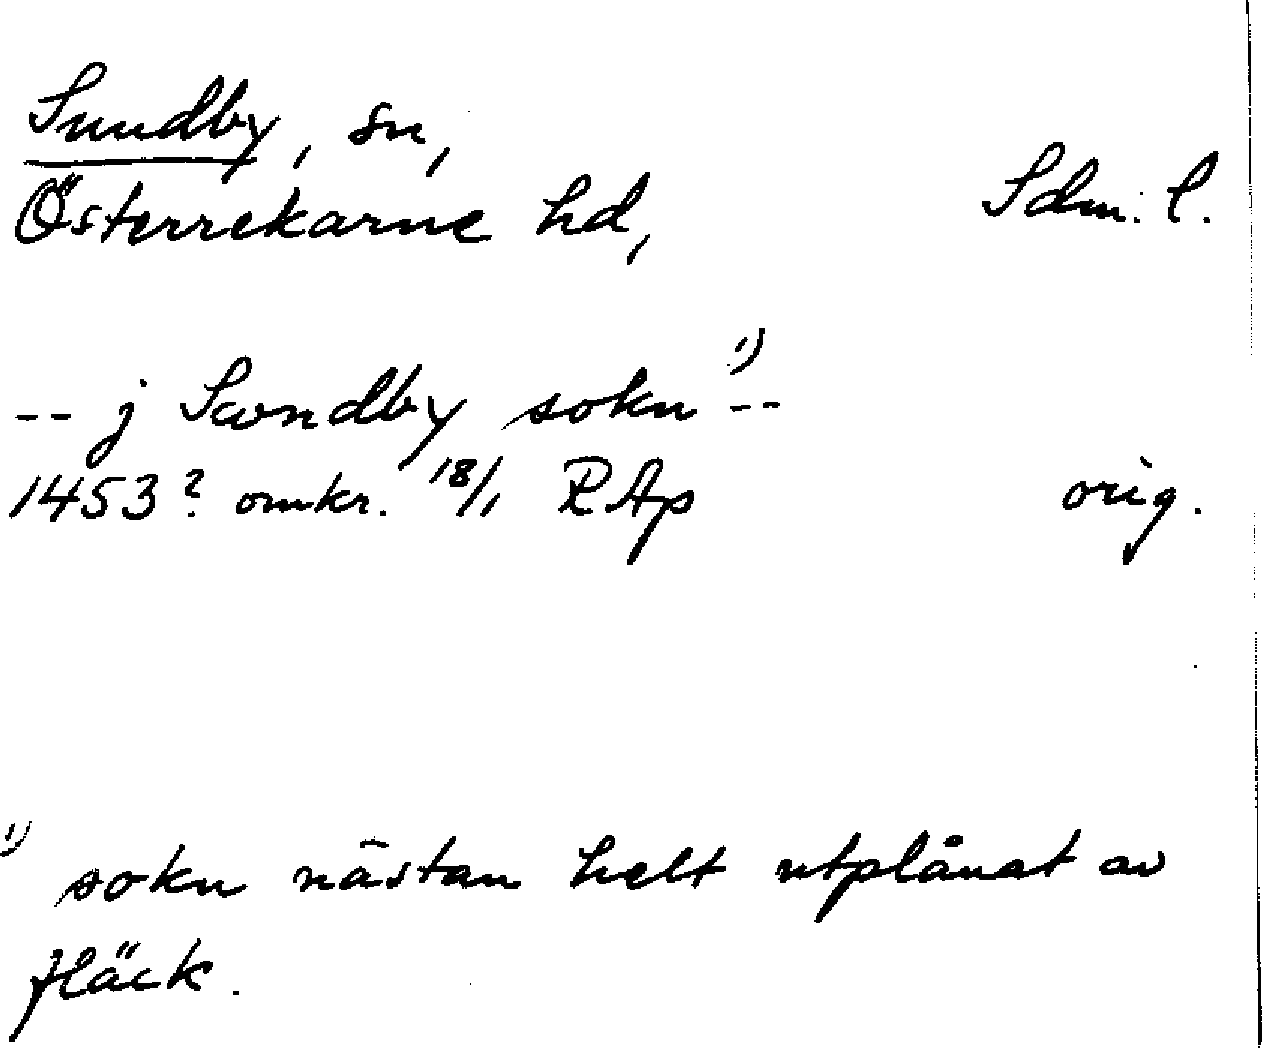 Sundby, sn,
Österrekarne hd, Sdm. l.
-- j Swndby sokn 1) --
1453? omkr. 18/1 RAp orig.
1) sokn nästan helt utplånat av
fläck.